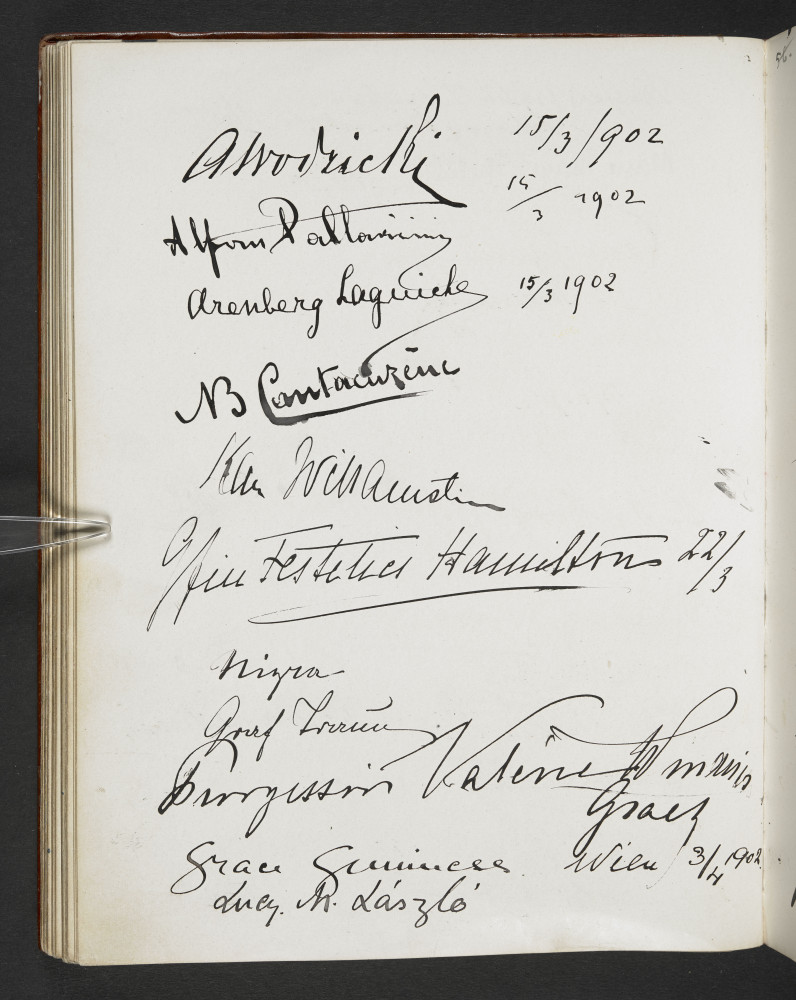 AWodzicki 15/3/902
Alfons Pallavicini 15/3 1902
Arenberg 15/3 1902
NB Cantacuzène
Karl Wittgenstein
Gfin Festetics Hamilton 22/3
Nigra
Graf Traun
Valérie
Graez
Grace Guinness Wien 3/4 1902
Lucy. M. László